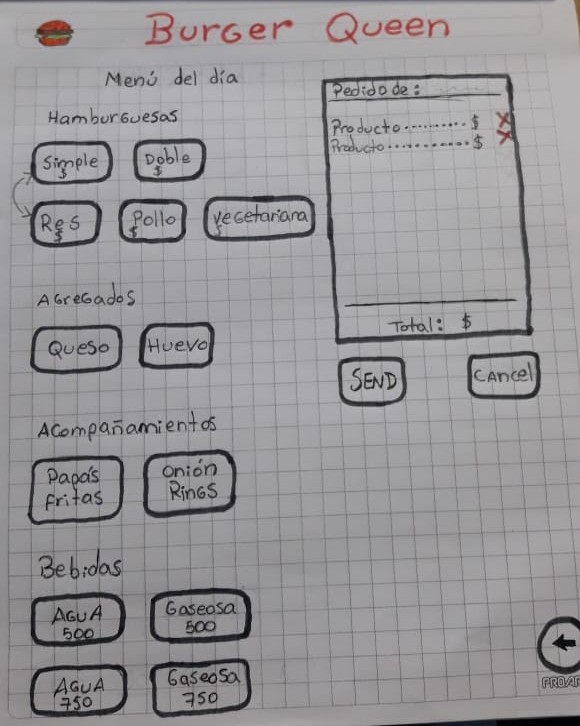 Burger Queen
Menú del día
Hamburguesas
Simple
$
Doble
$
Res
$
Pollo
$
Vegetariana
$
Agregados
Queso
Huevo
Acompañamientos
Papas
Fritas
Onión
Rings
Bebidas
AGUA
500
Gaseosa
500
AGUA
750
Gaseosa
750
Pedido de:
Producto.......... $ X
Producto............ $ X
Total: $
SEND
Cancel